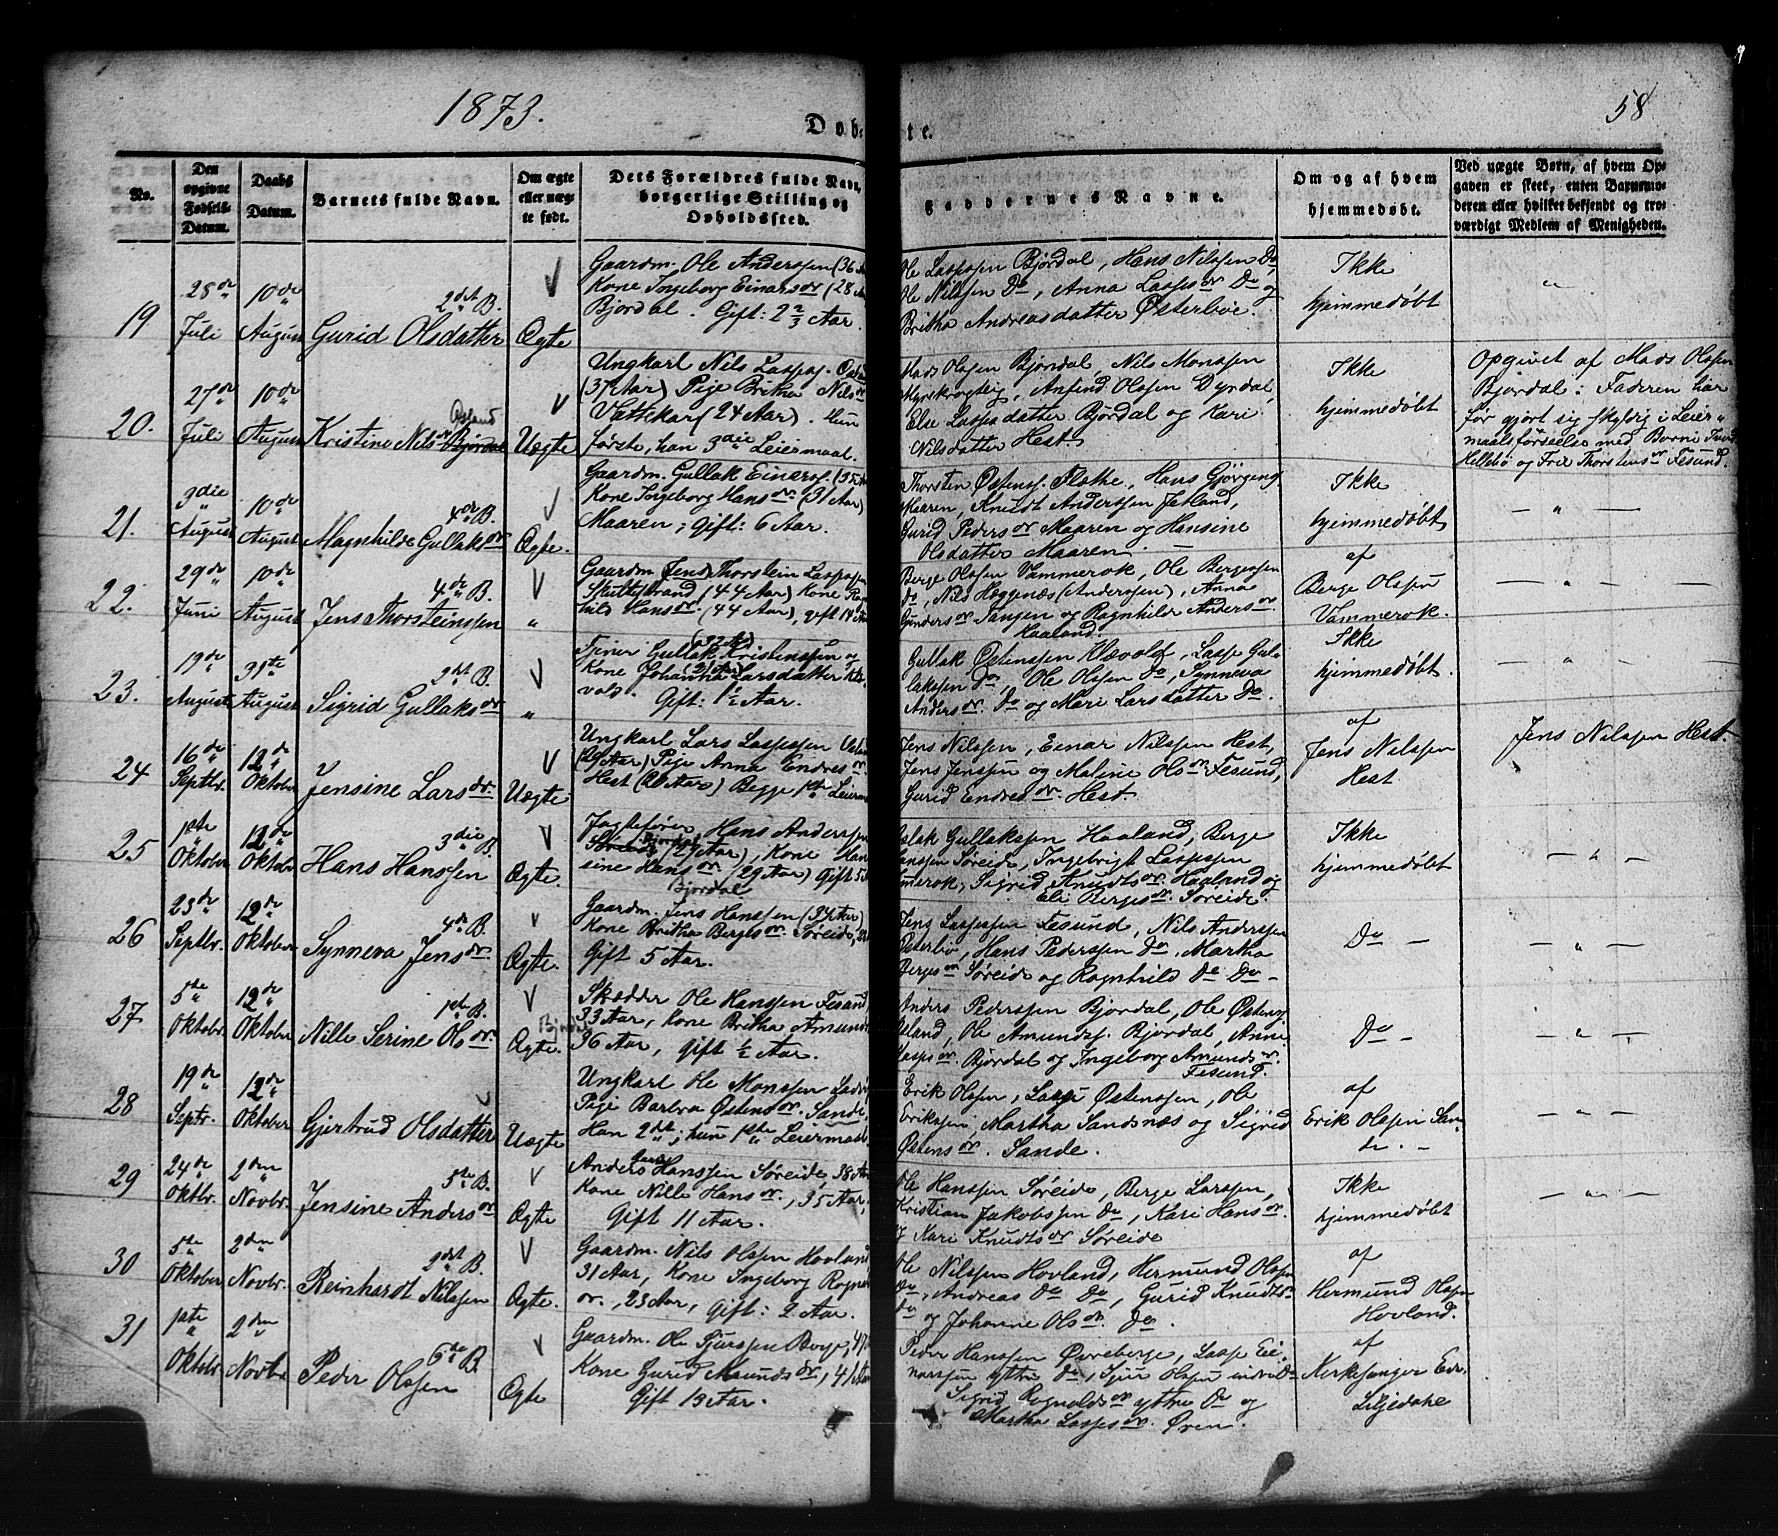 1873.
58
Døb-
te.
No.
Den
opgivne
Fødsels-
Datum.
Daabs
Datum.
Barnets fulde Navn.
Om ægte
eller uæg-
te født.
Dets Forældres fulde Navn,
borgerlige Stilling og
Opholdssted.
Faddernes Navne.
Om og af hvem
hjemmedøbt.
Ved uægte Børn, af hvem Op-
gaven er skeet, enten Barnemo-
deren eller hvilket bekjendt og tro-
værdigt Medlem af Menigheden.
19
28de
Juli
10de
August
2det B.
Gurid Olsdatter
Ægte
Gaardm. Ole Anderssen (36
Kone Ingeborg Einarsdr (28
Bjordal. Gift: 2 2/3 Aar.
Ole Lassesen Bjordal, Hans Nilssen Do,
Ole Nilssen Do, Anna Lassesdr Do og
Britha Andreasdatter Østerbøe.
Ikke
hjemmedøbt
"
20.
27de
Juli
10de
August
Kristine Nilsdr
Uægte
Ungkarl Nils
(37 Aar) Pige Britha Nilsdr
(24 Aar). Hun
første, han 3die Leiermaal.
Mads Olssen Bjordal, Nils Monssen
Anfind Olssen Dyrdal,
Else Lassedatter Bjordal og Kari
Nilsdatter Hest.
Ikke
hjemmedøbt
Opgivet af Mads Olssen
Bjordal: Faderen har
før gjort sig skyldig i Leier-
maalsforseelse med
og Thorstensdr Fesund.
21.
3die
August
10de
August
4de B.
Magnhilde Gullaksdr
Ægte.
Gaardm. Gullak Einarss. (35
Kone Ingeborg Hansdr. (31 Aar)
Maaren; Gift: 6 Aar.
Thorsten Østenss. Flæthe, Hans
Maaren, Knudt Anderssen
Gurid Pedersdr Maaren og Hansine
Olsdatter Maaren.
Ikke
hjemmedøbt
— " —
22.
29de
Juni
10de
August
4de B.
Jens Thorsteinssen
"
Gaardm. Jens Thorstein Lassesen
(44 Aar) Kone
Hansdr. (44 Aar), gift
Berge Olssen Vammerok, Ole Bergessen
Do, Nils Heggenæs (Anderssen), Anna
og Ragnhilde Andersdr
Haaland.
af
Berge Olssen
Vammerok.
— " —
23.
19de
August
31te
August
2det B.
Sigrid Gullaksdr
"
Tjener Gullak Kristenssen og
(32 Aar)
Kone Johanna Larsdatter
(21 Aar)
Gift: 1 1/2 Aar.
Gullak Østenssen Klævold, Lasse Gul-
lakssen Do, Ole Olssen Do, Synneva
Andersdr. Do og Mari Larsdatter Do
Ikke
hjemmedøbt.
— " —
24
16de
Septbr.
12de
Oktober
Jensine Larsdr.
Uægte
Ungkarl Lars Lassesen
(29 Aar) Pige Anna Endresdr
Hest (20 Aar) Begge 1ste
Jens Nilssen, Einar Nilssen Hest,
Jens Jenssen og Maline Olsdr Fesund,
Gurid Endresdr. Hest.
af
Jens Nilssen
Hest
Jens Nilssen Hest.
25
1ste
Oktober
12de
Oktober
3die B.
Hans Hanssen
Ægte.
Jagtefører Hans Anderssen
(27 Aar), Kone Han-
sine Hansdr. (29 Aar) Gift 5
Bjordal
Aslak Gullakssen Haaland, Berge
Hanssen Søreide, Ingebrigt Lassesen
Sigrid Knudtsdr. Haaland og
Eli Bergesdr. Søreide.
Ikke
hjemmedøbt
— " —
26
23de
Septbr.
12de
Oktober
4de B.
Synneva Jensdr
Ægte.
Gaardm. Jens Hanssen (34 Aar)
Kone Britha Bergesdr. Søreide,
Gift 5 Aar.
Jens Lassesen Fesund, Nils Anderssen
Østerbø, Hans Pederssen Do, Martha
Bergesdr Søreide og Ragnhild Do Do —
Do —
— " —
27
5te
Oktobr.
12de
Oktober
1ste B.
Nille Serine Olsdr.
Ægte.
Skrædder Ole Hanssen Fesund
33 Aar, Kone Britha Amunds
36 Aar, Gift 1/2 Aar.
Anders Pederssen Bjordal, Ole
Ole Amundss. Bjordal, Anne
Lassesdr. Bjordal og Ingeborg Amundsdr.
Fesund.
Do —
— " —
28
19de
Septr.
12de
Oktober
Gjertrud Olsdatter
Uægte
Ungkarl Ole Monssen
Pige Barbra Østensdr. Sande,
Han 2det; hun 1ste Leiermaal.
Erik Olssen, Lasse Østenssen, Ole
Erikssen, Martha Sandsnæs og Sigrid
Østensdr. Sande.
af
Erik Olssen San-
de. —
— " —
29
24de
Oktbr.
2den
Novbr.
5te B.
Jensine Andersdr
Ægte
Anders Hanssen Søreide, 38
Kone Nille Hansdr., 35 Aar,
Gift 11 Aar.
Ole Hanssen Søreide, Berge Larssen,
Kristian Jakobssen Do, Kari Hansdr.
og Kari Knudtsdr Søreide
Ikke
hjemmedøbt
— " —
30
5te
Oktober
2den
Novbr.
2det B.
Reinhardt Nilssen
Ægte.
Gaardm. Nils Olssen Hovland,
31 Aar, Kone Ingeborg Ragna
dr., 23 Aar, Gift: 2 Aar.
Ole Nilssen Hovland, Hermund Olssen
Do, Andreas Do Do, Gurid Knudtsdr
Do og Johanne Olsdr. Do.
af
Hermund Olssen
Hovland.
31
1ste
Oktbr.
2den
Novbr.
6te B
Peder Olssen
Ægte
Gaardm. Ole Sjurssen Berge, 47
Kone Gurid Maunds dr, 41 Aar
Gift 13 Aar.
Peder Hanssen Øvreberge, Lasse Ei-
narssen yttre Do, Sjur Olssen indre Do
Sigrid Ragnaldsdr yttre Do og
Martha Lassesdr. Øren.
af
Kirkesanger
Liljedahl